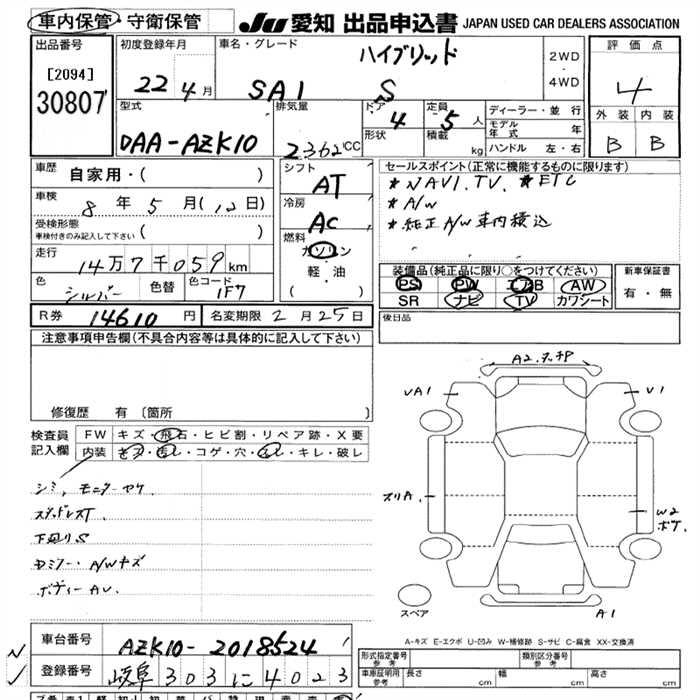 車内保管・守衛保管
JU 愛知 出品申込書 JAPAN USED CAR DEALERS ASSOCIATION
出品番号
[2094]
30807
初度登録年月
22 4月
車名・グレード ハイブリッド
SAI S
2WD
・
4WD
評価点
4
外装 内装
B B
型式
DAA-AZK10
排気量
2362CC
ドア
4
形状
定員
5人
積載 kg
ディーラー・並行
モデル年式 年
ハンドル 左・右
車歴 自家用・( )
車検 8年5月(12日)
受検形態
車検付きのみ記入して下さい ( )
走行 14万7千059km
色 シルバー 色替 色コード 1F7
シフト
AT
冷房
AC
燃料
ガソリン
軽・油
( )
セールスポイント(正常に機能するものに限ります)
* NAVI.TV. * ETC
* A/W
* 純正A/W車内積込
装備品(純正品に限り○をつけてください)
PS PW エアB AW
SR ナビ TV カワシート
新車保証書
有・無
R券 14610円 名変期限 2月25日
後日品
注意事項申告欄(不具合内容等は具体的に記入して下さい)
修復歴 有〔箇所 〕
検査員
記入欄
FW キズ・飛石・ヒビ割・リペア跡・X要
内装 キズ・汚レ・コゲ・穴・スレ・キレ・破レ
シミ, モニターヤケ
スタッドレスT
下廻りS
A/Wキズ
ボディーAU
A2.タッチP
UA1
U1
スリA
W2
ボケ
スペア
A1
A-キズ E-エクボ U-凹み W-補修跡 S-サビ C-腐食 XX-交換済
車台番号 AZK10-2018524
登録番号 岐阜 303 に 4023
形式指定番号 参考
類別区分番号 参考
車庫証明用 参考 長さ cm 幅 cm 高さ cm